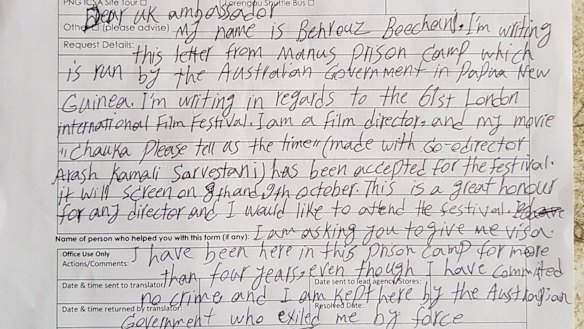 PNG ICSA Site Tour □ Lorengau Shuttle Bus □
Dear uk ambassador
Other □ (please advise) My name is Behrouz Boochani. I'm writing
Request Details: this letter from Manus prison camp which
is run by the Australian Government in Papua New
Guinea. I'm writing in regards to the 61st London
international Film Festival. I am a film director, and my movie
"Chauka please tell as the time" (made with Co-director
Arash Kamali Sarvestani) has been accepted for the festival.
it will screen on 8th and 9th october. This is a great honour
for any director and I would like to atend the festival.
Name of person who helped you with this form (if any): I am asking you to give me visa.
Office Use Only I have been here in this prison camp for more
Actions/Comments: than four years, even though I have committed
Date & time sent to translator: Date sent to lead agency/stores:
no crime and I am kept here by the Australian
Date & time returned by translator: Resolved Date:
Government who exiled me by force